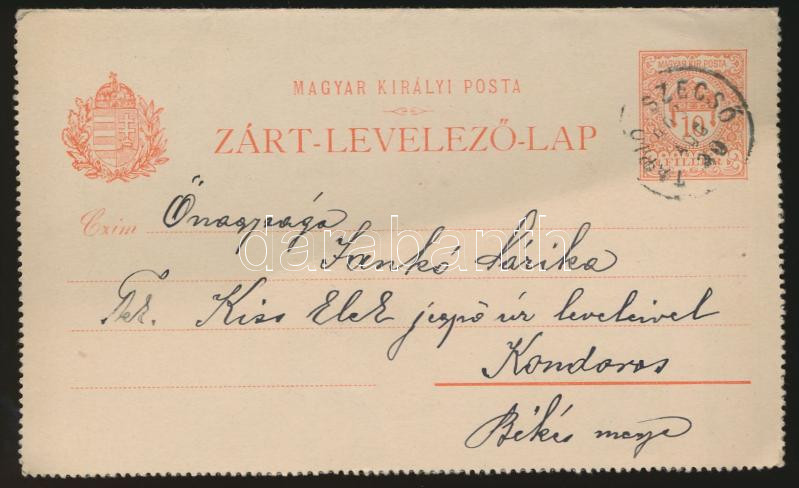 MAGYAR KIRÁLYI POSTA
ZÁRT-LEVELEZŐ-LAP
MAGYAR KIR. POSTA
10
FILLÉR
TÁPIÓ SZECSŐ
Czím
Őnagysága
Jankó Sárika
Tek. Kiss Elek jegyző úr leveleivel
Kondoros
Békés megye
darabanth